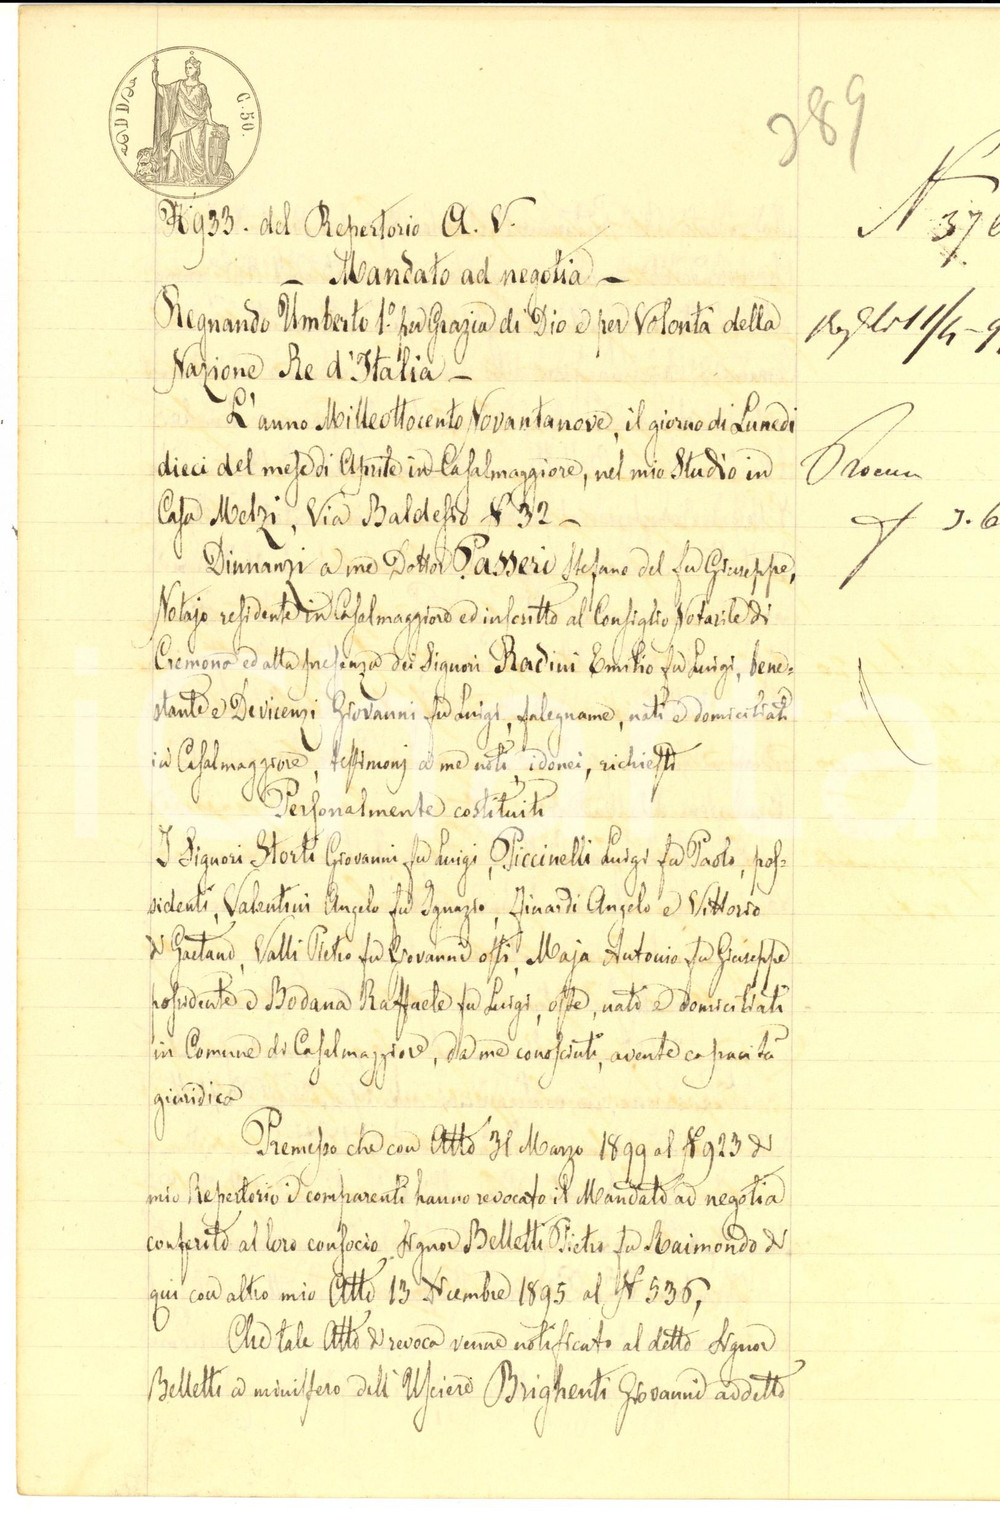 C. 50.
289
N 933. del Repertorio A. V.
N 376
– Mandato ad negotia –
Regnando Umberto 1.° per Grazia di Dio e per Volontà della
Nazione Re d'Italia –
L'anno Milleottocento Novantanove, il giorno di Lunedi
dieci del mese di Aprile in Casalmaggiore, nel mio Studio in
Casa Melzi, Via Baldesio N° 32 –
Dinnanzi a me Dottor Passeri Stefano del fu Giuseppe,
Notajo residente in Casalmaggiore ed inscritto al Consiglio Notarile di
Cremona ed alla presenza dei Signori Radini Emilio fu Luigi, bene=
stante e Devicenzi Giovanni fu Luigi, falegname, nati e domiciliati
in Casalmaggiore, testimonj a me noti, idonei, richiesti
Personalmente costituiti
I Signori Storti Giovanni fu Luigi, Piccinelli Luigi fu Paolo, pos=
sidenti, Valentini Angelo fu Ignazio, Finardi Angelo e Vittorio
di Gaetano, Valli Pietro fu Giovanni osti, Maja Antonio fu Giuseppe
possidente e Bodana Raffaele fu Luigi, oste, nati e domiciliati
in Comune di Casalmaggiore, da me conosciuti, avente capacità
giuridica
Premesso che con Atto 31 Marzo 1899 al N° 923 di
mio Repertorio i comparenti hanno revocato il Mandato ad negotia
conferito al loro consocio Signor Belletti Pietro fu Raimondo di
qui con altro mio Atto 13 Dicembre 1895 al N° 536,
Che tale Atto di revoca venne notificato al detto Signor
Belletti a ministero dell'Usciere Brighenti Giovanni addetto